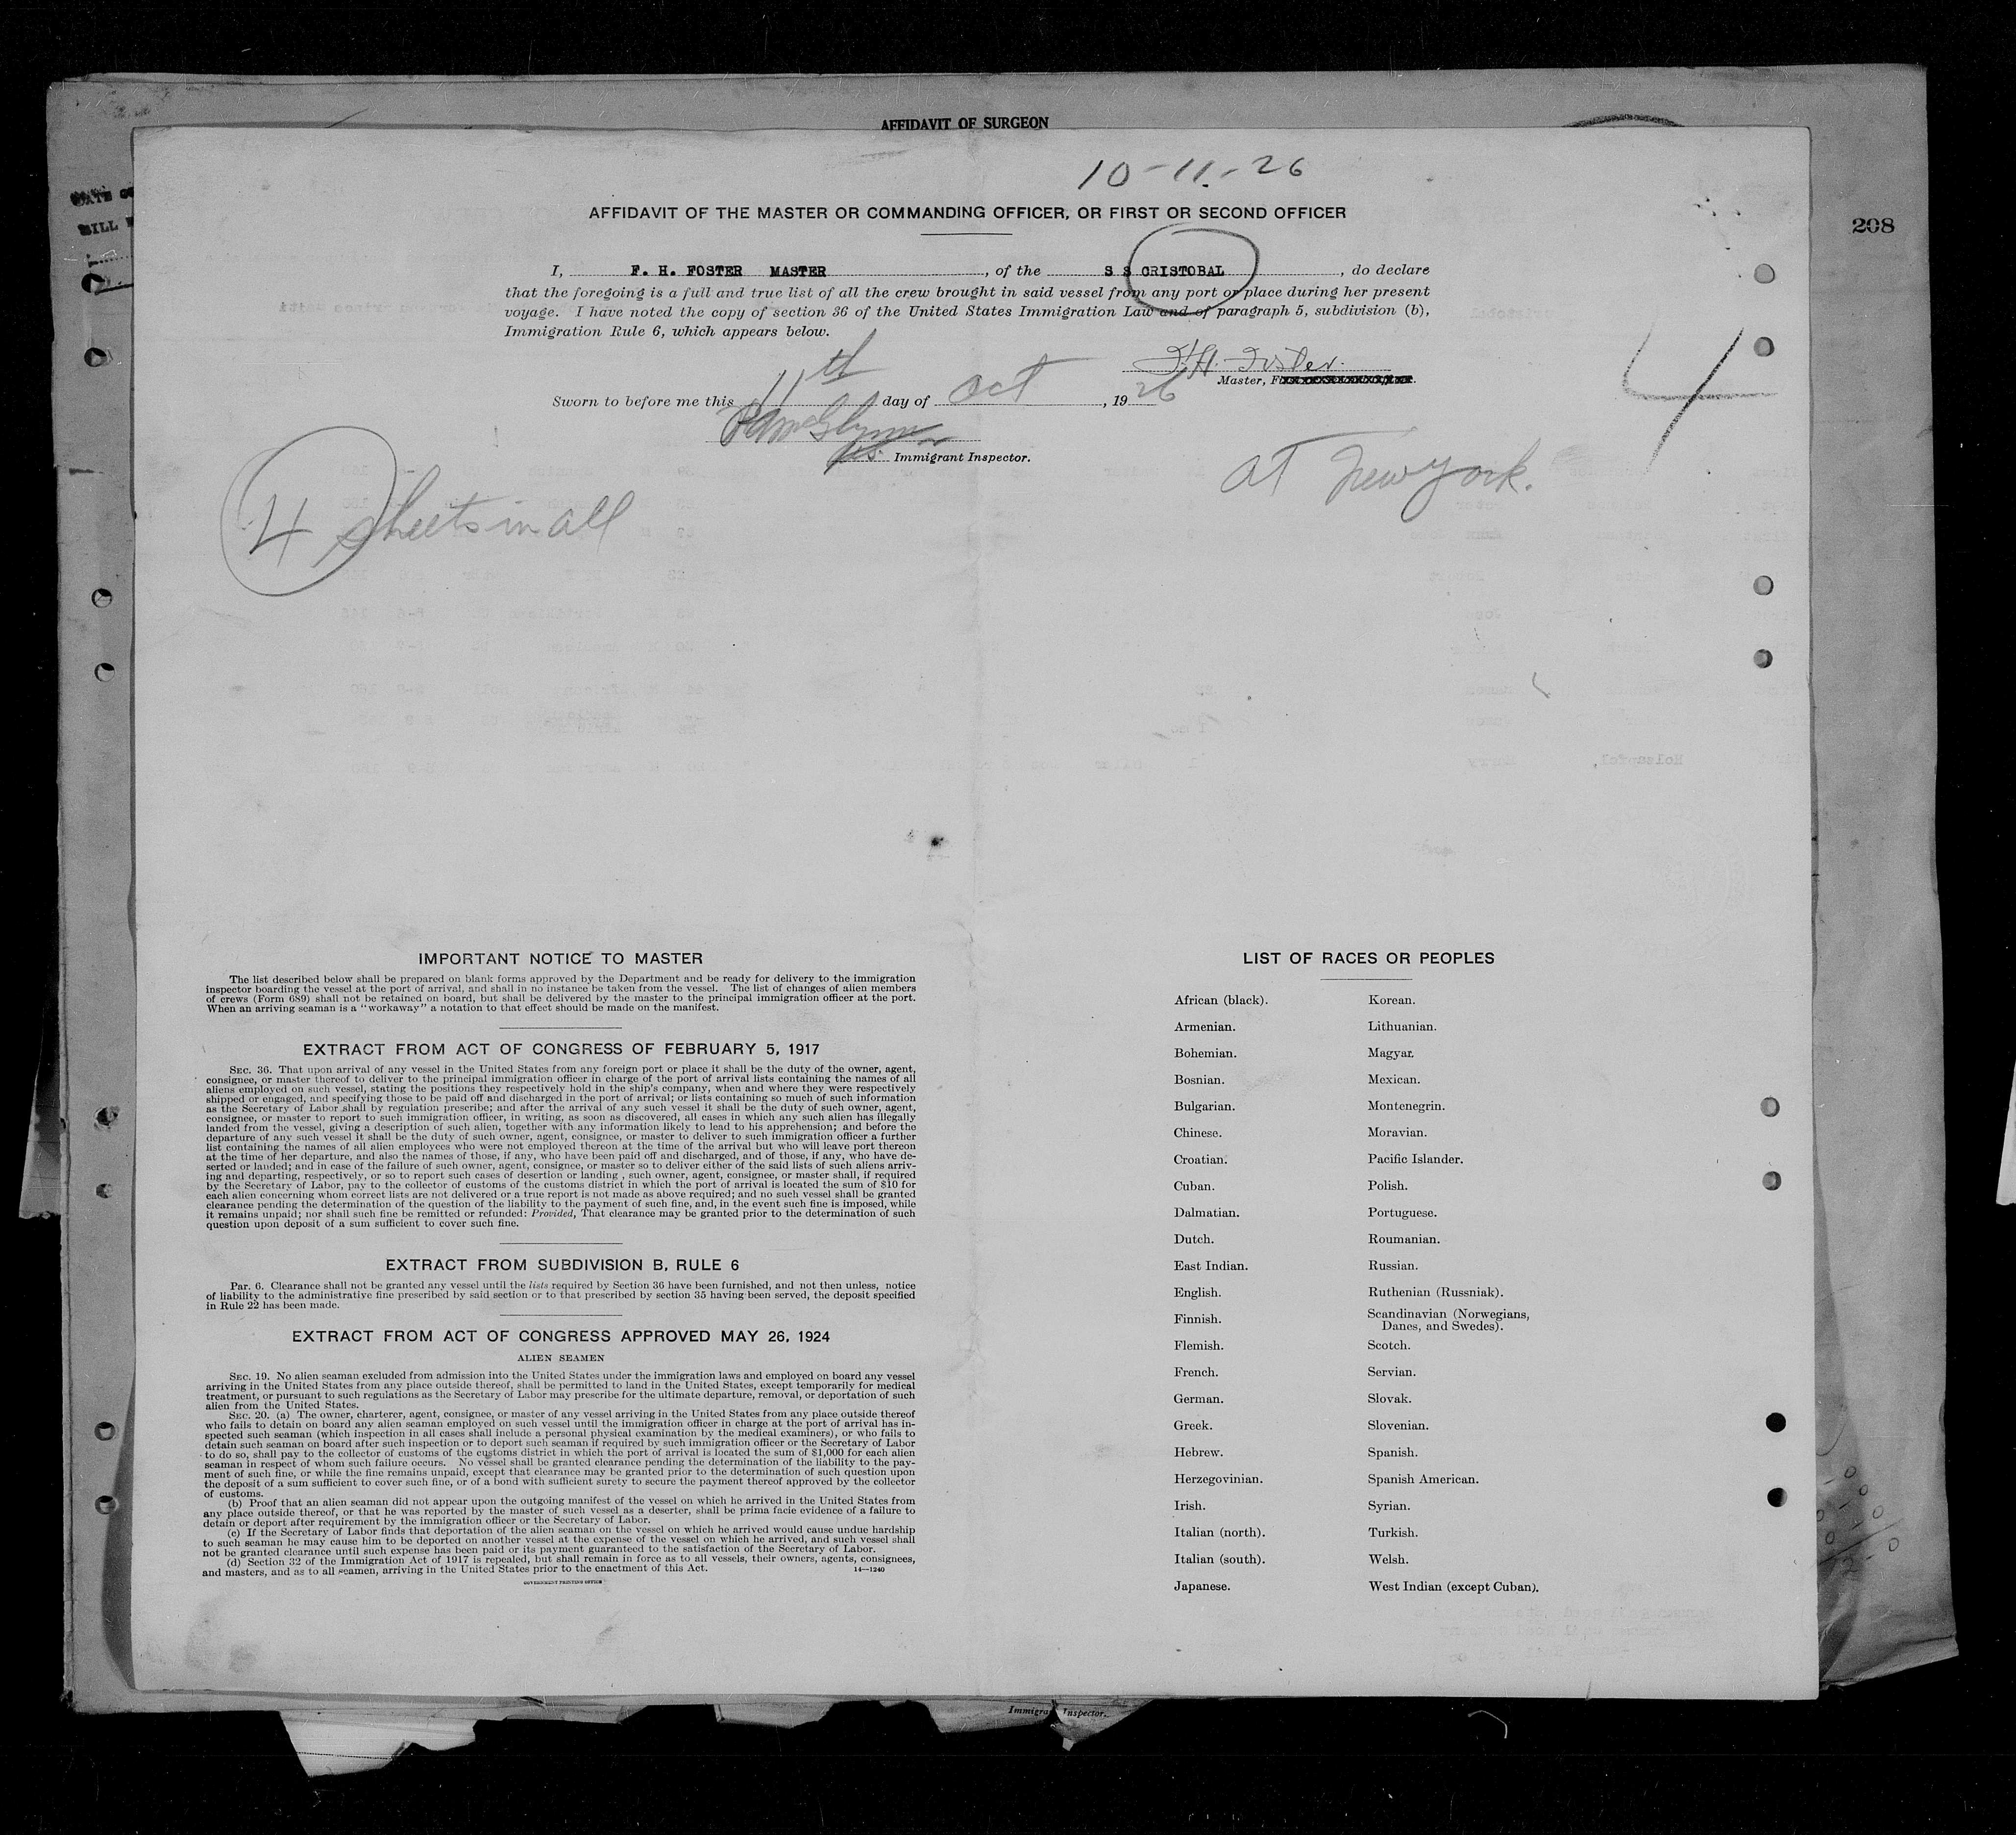 AFFIDAVIT OF SURGEON
10-11-26
208
AFFIDAVIT OF THE MASTER OR COMMANDING OFFICER, OR FIRST OR SECOND OFFICER
I, F. H. FOSTER MASTER, of the S S CRISTOBAL, do declare
that the foregoing is a full and true list of all the crew brought in said vessel from any port or place during her present
voyage. I have noted the copy of section 36 of the United States Immigration Law and of paragraph 5, subdivision (b),
Immigration Rule 6, which appears below.
F.H. Foster
Master, F
Sworn to before me this 11th day of Oct, 1926
Immigrant Inspector.
4
at New York.
4 sheets in all
IMPORTANT NOTICE TO MASTER
The list described below shall be prepared on blank forms approved by the Department and be ready for delivery to the immigration
inspector boarding the vessel at the port of arrival, and shall in no instance be taken from the vessel. The list of changes of alien members
of crews (Form 689) shall not be retained on board, but shall be delivered by the master to the principal immigration officer at the port.
When an arriving seaman is a "workaway" a notation to that effect should be made on the manifest.
EXTRACT FROM ACT OF CONGRESS OF FEBRUARY 5, 1917
SEC. 36. That upon arrival of any vessel in the United States from any foreign port or place it shall be the duty of the owner, agent,
consignee, or master thereof to deliver to the principal immigration officer in charge of the port of arrival lists containing the names of all
aliens employed on such vessel, stating the positions they respectively hold in the ship's company, when and where they were respectively
shipped or engaged, and specifying those to be paid off and discharged in the port of arrival; or lists containing so much of such information
as the Secretary of Labor shall by regulation prescribe; and after the arrival of any such vessel it shall be the duty of such owner, agent,
consignee, or master to report to such immigration officer, in writing, as soon as discovered, all cases in which any such alien has illegally
landed from the vessel, giving a description of such alien, together with any information likely to lead to his apprehension; and before the
departure of any such vessel it shall be the duty of such owner, agent, consignee, or master to deliver to such immigration officer a further
list containing the names of all alien employees who were not employed thereon at the time of the arrival but who will leave port thereon
at the time of her departure, and also the names of those, if any, who have been paid off and discharged, and of those, if any, who have de-
serted or landed; and in case of the failure of such owner, agent, consignee, or master so to deliver either of the said lists of such aliens arriv-
ing and departing, respectively, or so to report such cases of desertion or landing , such owner, agent, consignee, or master shall, if required
by the Secretary of Labor, pay to the collector of customs of the customs district in which the port of arrival is located the sum of $10 for
each alien concerning whom correct lists are not delivered or a true report is not made as above required; and no such vessel shall be granted
clearance pending the determination of the question of the liability to the payment of such fine, and, in the event such fine is imposed, while
it remains unpaid; nor shall such fine be remitted or refunded: Provided, That clearance may be granted prior to the determination of such
question upon deposit of a sum sufficient to cover such fine.
EXTRACT FROM SUBDIVISION B, RULE 6
Par. 6. Clearance shall not be granted any vessel until the lists required by Section 36 have been furnished, and not then unless, notice
of liability to the administrative fine prescribed by said section or to that prescribed by section 35 having been served, the deposit specified
in Rule 22 has been made.
EXTRACT FROM ACT OF CONGRESS APPROVED MAY 26, 1924
ALIEN SEAMEN
SEC. 19. No alien seaman excluded from admission into the United States under the immigration laws and employed on board any vessel
arriving in the United States from any place outside thereof, shall be permitted to land in the United States, except temporarily for medical
treatment, or pursuant to such regulations as the Secretary of Labor may prescribe for the ultimate departure, removal, or deportation of such
alien from the United States.
SEC. 20. (a) The owner, charterer, agent, consignee, or master of any vessel arriving in the United States from any place outside thereof
who fails to detain on board any alien seaman employed on such vessel until the immigration officer in charge at the port of arrival has in-
spected such seaman (which inspection in all cases shall include a personal physical examination by the medical examiners), or who fails to
detain such seaman on board after such inspection or to deport such seaman if required by such immigration officer or the Secretary of Labor
to do so, shall pay to the collector of customs of the customs district in which the port of arrival is located the sum of $1,000 for each alien
seaman in respect of whom such failure occurs. No vessel shall be granted clearance pending the determination of the liability to the pay-
ment of such fine, or while the fine remains unpaid, except that clearance may be granted prior to the determination of such question upon
the deposit of a sum sufficient to cover such fine, or of a bond with sufficient surety to secure the payment thereof approved by the collector
of customs.
(b) Proof that an alien seaman did not appear upon the outgoing manifest of the vessel on which he arrived in the United States from
any place outside thereof, or that he was reported by the master of such vessel as a deserter, shall be prima facie evidence of a failure to
detain or deport after requirement by the immigration officer or the Secretary of Labor.
(c) If the Secretary of Labor finds that deportation of the alien seaman on the vessel on which he arrived would cause undue hardship
to such seaman he may cause him to be deported on another vessel at the expense of the vessel on which he arrived, and such vessel shall
not be granted clearance until such expense has been paid or its payment guaranteed to the satisfaction of the Secretary of Labor.
(d) Section 32 of the Immigration Act of 1917 is repealed, but shall remain in force as to all vessels, their owners, agents, consignees,
and masters, and as to all seamen, arriving in the United States prior to the enactment of this Act. 14—1240
GOVERNMENT PRINTING OFFICE
LIST OF RACES OR PEOPLES
African (black). Korean.
Armenian. Lithuanian.
Bohemian. Magyar.
Bosnian. Mexican.
Bulgarian. Montenegrin.
Chinese. Moravian.
Croatian. Pacific Islander.
Cuban. Polish.
Dalmatian. Portuguese.
Dutch. Roumanian.
East Indian. Russian.
English. Ruthenian (Russniak).
Finnish. Scandinavian (Norwegians,
Danes, and Swedes).
Flemish. Scotch.
French. Servian.
German. Slovak.
Greek. Slovenian.
Hebrew. Spanish.
Herzegovinian. Spanish American.
Irish. Syrian.
Italian (north). Turkish.
Italian (south). Welsh.
Japanese. West Indian (except Cuban).
Inspector.